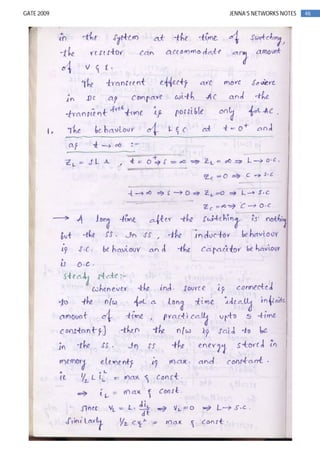 GATE 2009 JENNA'S NETWORKS NOTES 46
in the system at the time of switching,
the resistor can accommodate any amount
of V & I.
The transient effects are more severe
in DC as compare with AC and the
transient free time is possible only for AC.
1. The behaviour of L & C at t = 0⁺ and
as t → ∞ :-
Z_L = SL Ω , t = 0⁺ ⇒ S = ∞ ⇒ Z_L = ∞ ⇒ L → O.C.
Z_C = 0 ⇒ C → S.C
t → ∞ ⇒ S → 0 ⇒ Z_L = 0 ⇒ L → S.C
Z_C = ∞ ⇒ C → O.C
→ A long time after the switching is nothing
but the SS. In SS, the inductor behaviour
is S.C. behaviour and the capacitor behaviour
is O.C.
Steady state:-
Whenever the ind. source is connected
to the n/w for a long time [ideally infinite
amount of time, practically upto 5 time
constants] then the n/w is said to be
in the SS. In SS the energy stored in the
memory elements is max. and constant.
ie ½ L i_L² = max & const.
⇒ i_L = max & const.
since V_L = L. di_L/dt ⇒ V_L = 0 ⇒ L → S.C.
Similarly ½ C V_C² = max & const.